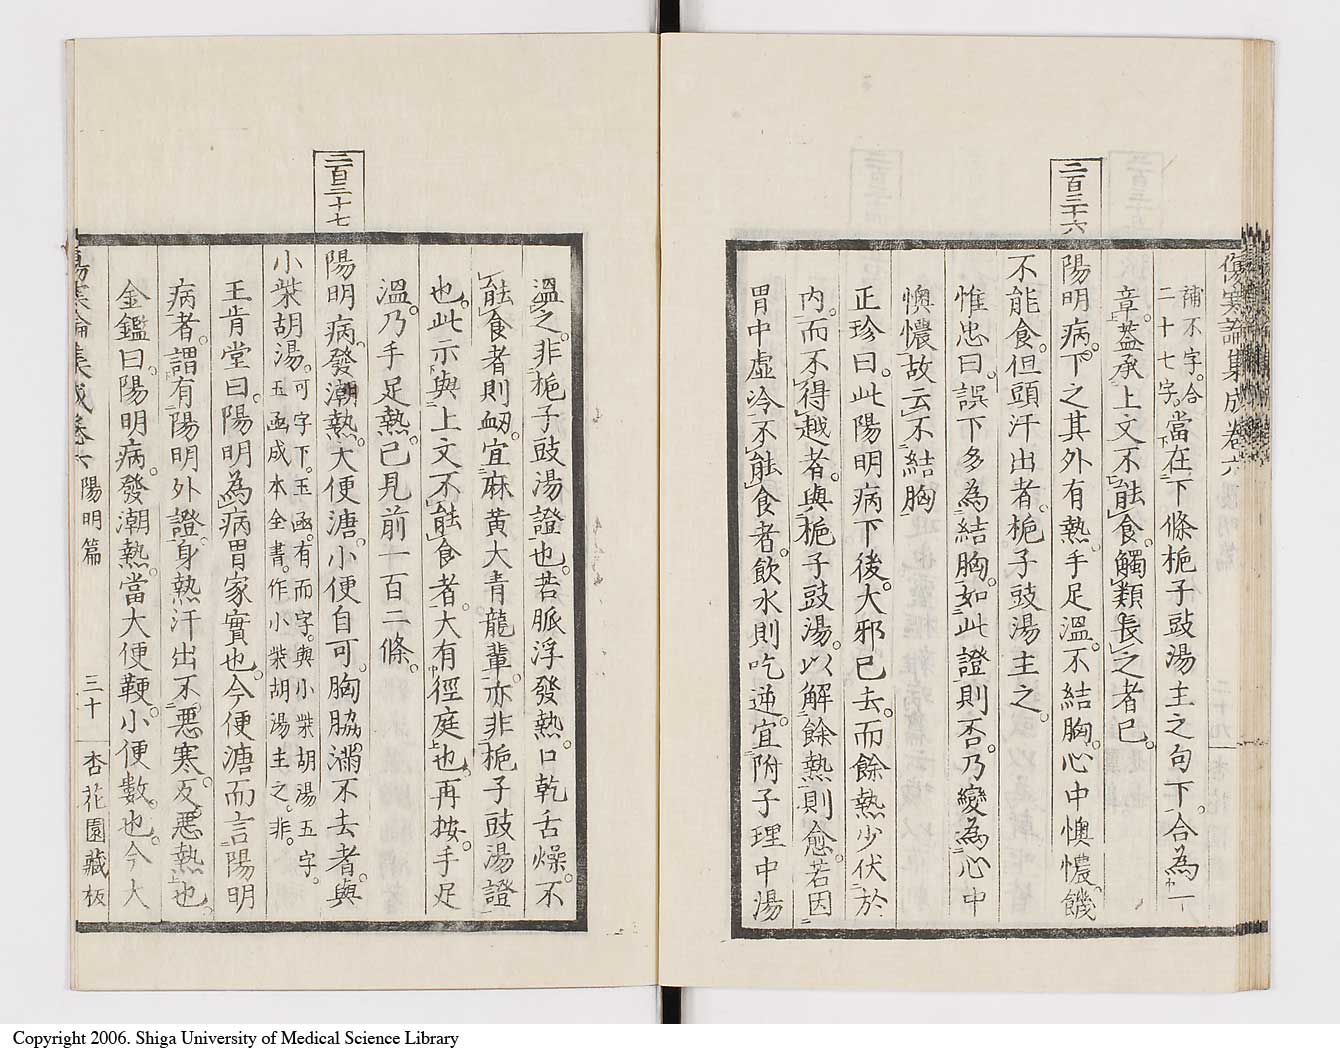 二百三十六
傷寒論集成卷六
補不字。合
二十七字。當在下條梔子豉湯主之句下。合為一
章。蓋承上文不能食。觸類長之者已。
陽明病。下之其外有熱。手足溫。不結胸。心中懊憹。饑
不能食。但頭汗出者。梔子豉湯主之。
惟忠曰。誤下多為結胸。如此證則否。乃變為心中
懊憹。故云不結胸
正珍曰。此陽明病下後。大邪已去。而餘熱少伏於
內。而不得越者。與梔子豉湯。以解餘熱則愈。若因
胃中虛冷不能食者。飲水則吃逆。宜附子理中湯
二百三十七
溫之。非梔子豉湯證也。若脈浮發熱。口乾舌燥。不
能食者則衂。宜麻黃大青龍輩。亦非梔子豉湯證
也。此示與上文不能食者。大有徑庭也。再按。手足
溫。乃手足熱。已見前一百二條。
陽明病。發潮熱。大便溏。小便自可。胸脇滿不去者。與
小柴胡湯。可字下。玉函。有而字。與小柴胡湯五字。
玉函成本全書。作小柴胡湯主之。非。
王肯堂曰。陽明為病胃家實也。今便溏而言陽明
病者。謂有陽明外證。身熱汗出不惡寒。反惡熱也。
金鑑曰。陽明病。發潮熱。當大便鞕。小便數也。今大
傷寒論集成卷六 陽明篇 三十 杏花園藏板
Copyright 2006. Shiga University of Medical Science Library